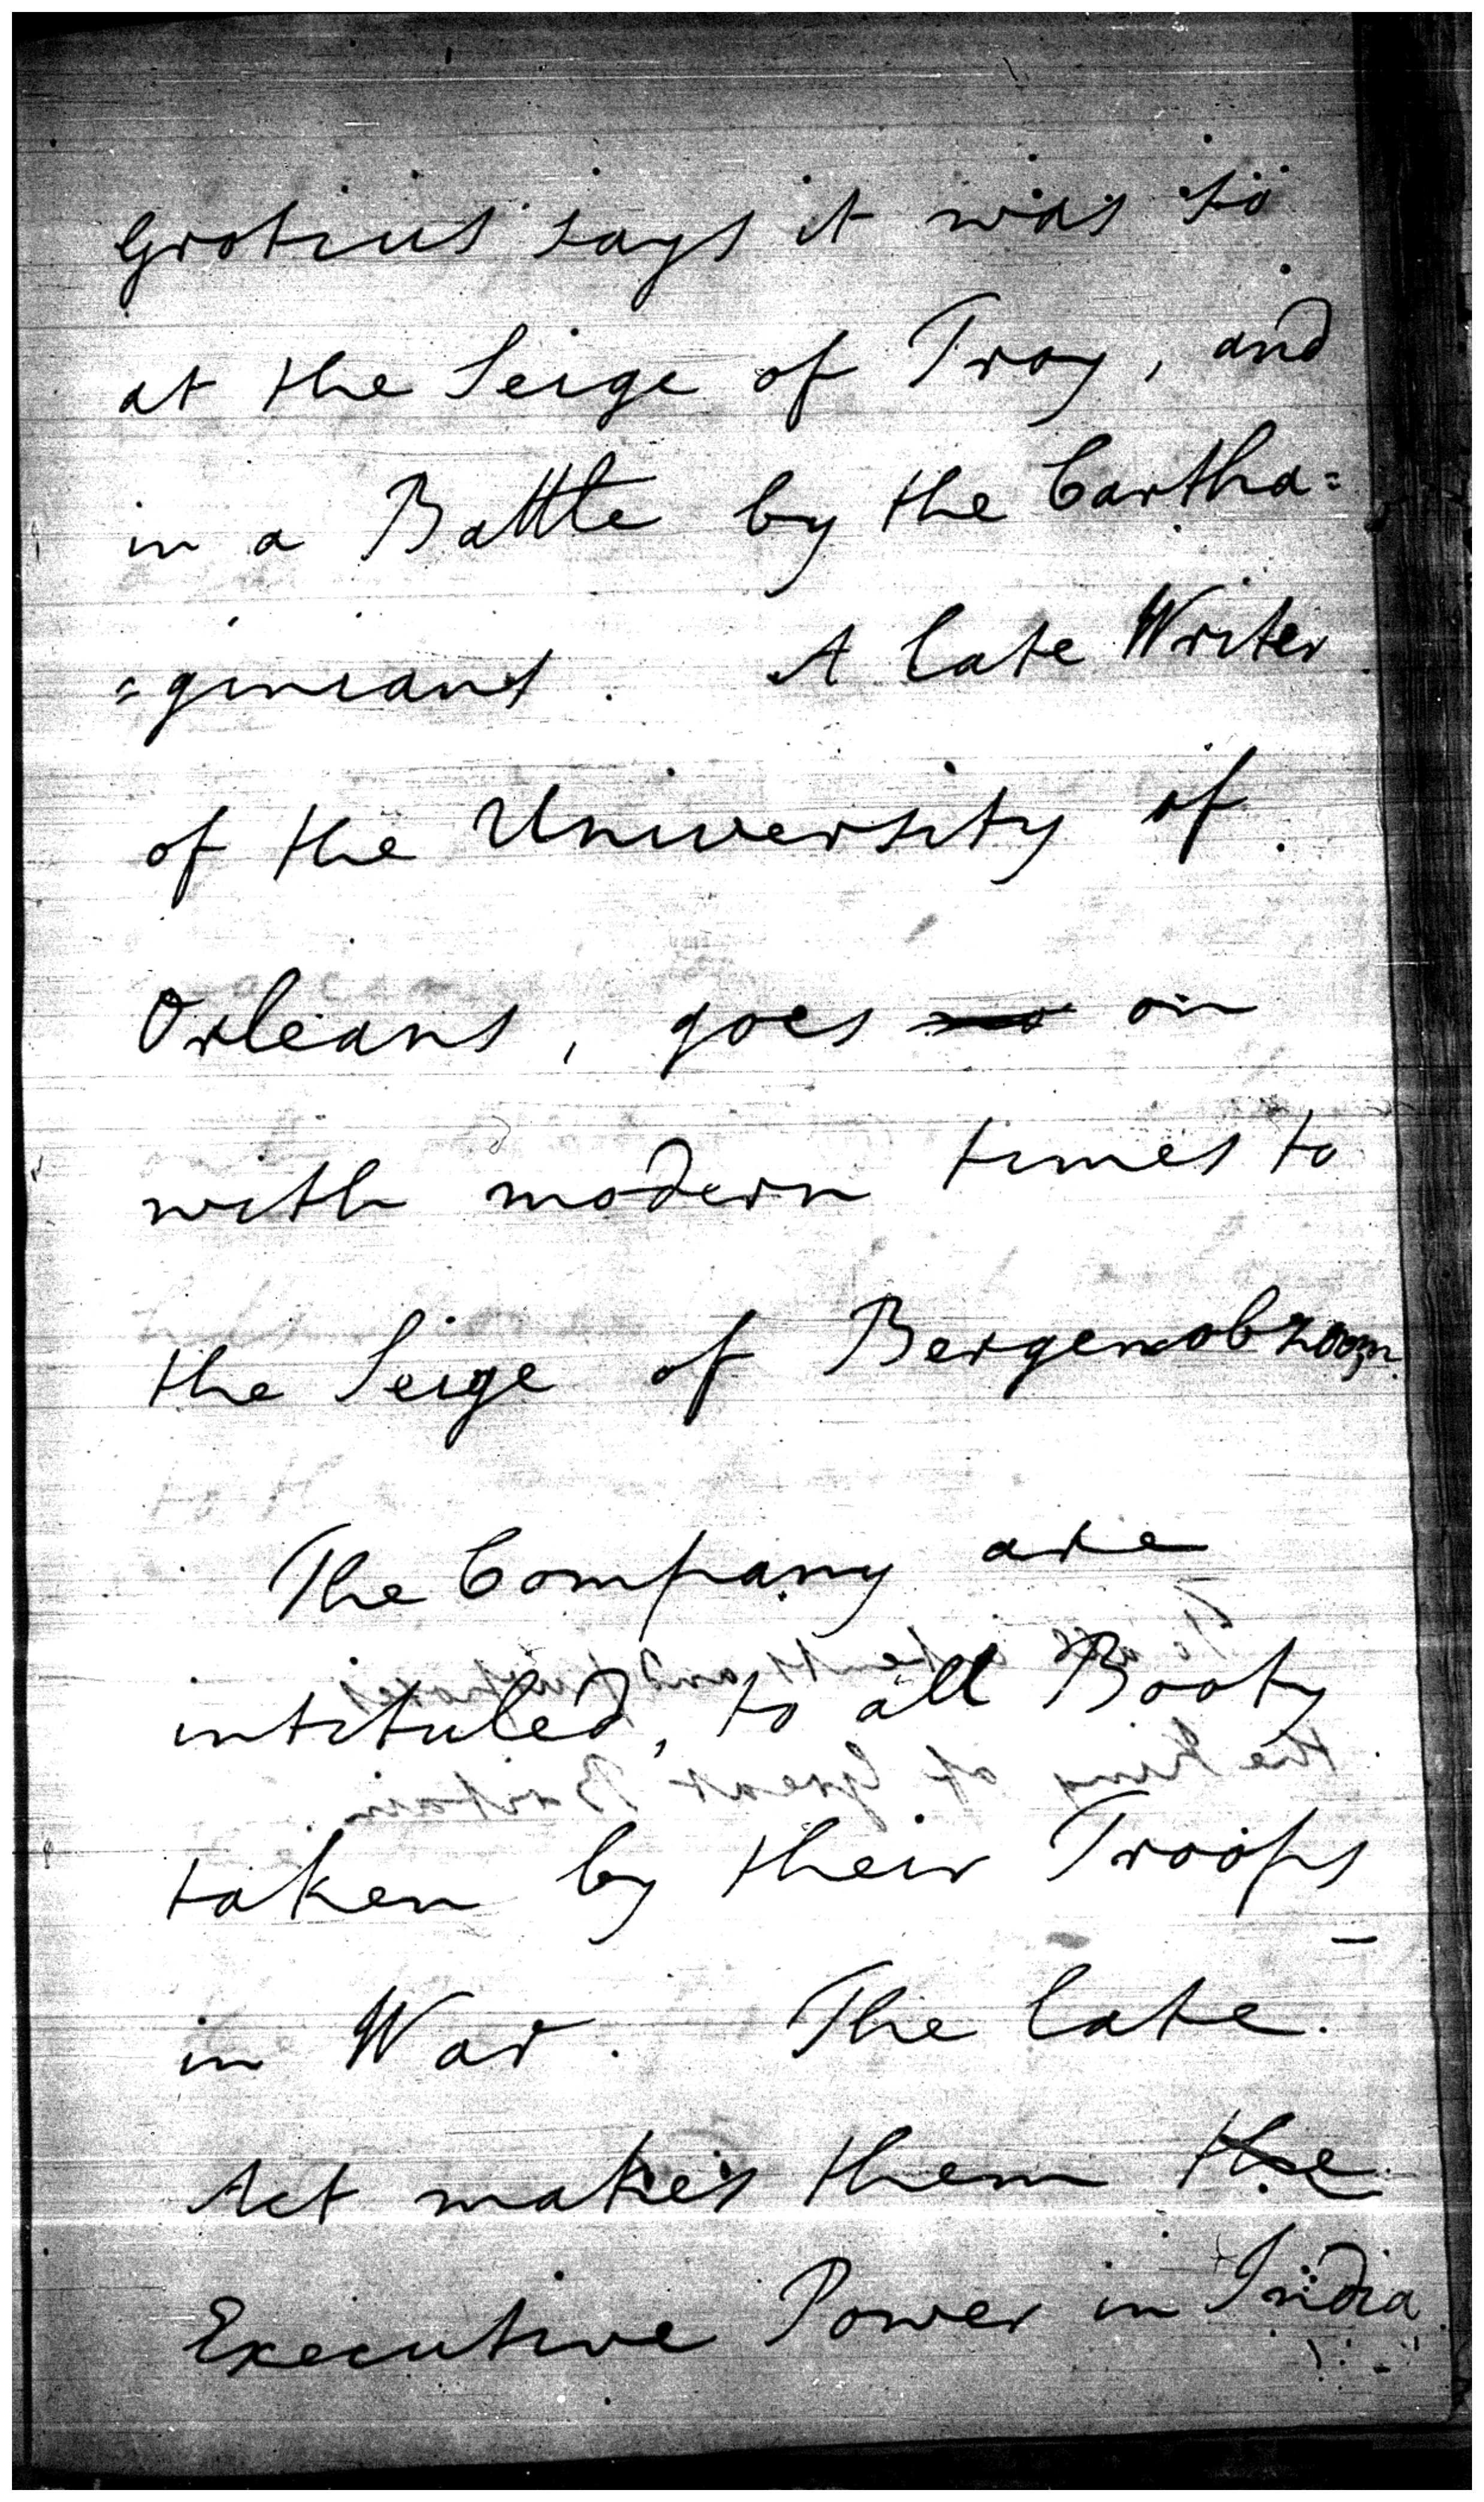 Grotius says it was so
at the Seige of Troy, and
in a Battle by the Cartha=
=ginians. A late Writer
of the University of
Orleans, goes on
with modern times to
the Seige of Bergenobzoom
The Company are
intituled, to all Booty
taken by their Troops
in War. The late
Act makes them the
Executive Power in India